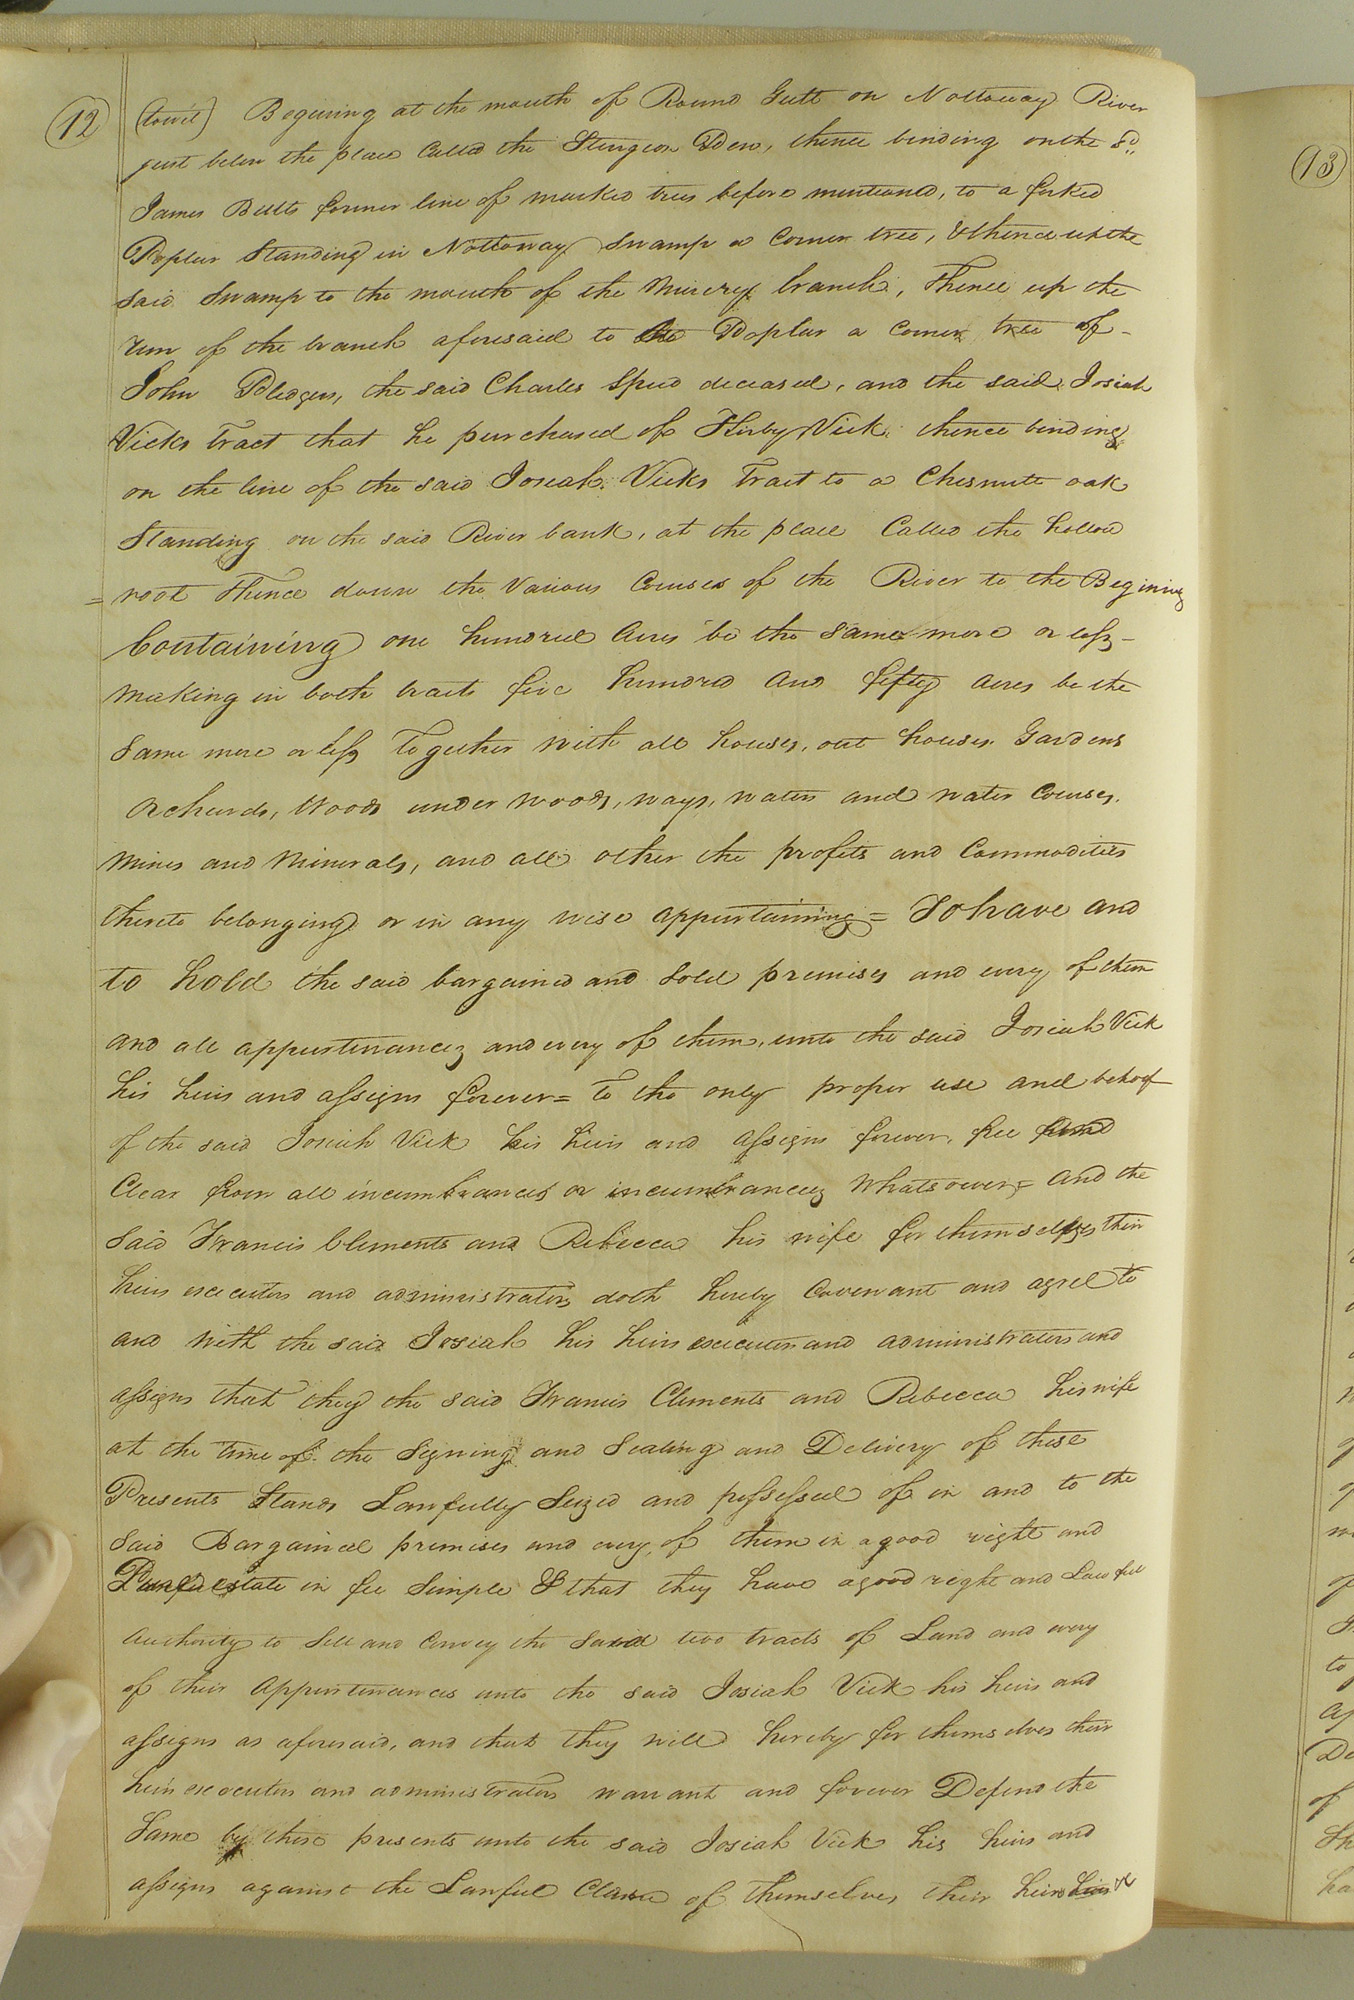 12
(towit) Begining at the mouth of Round Gutt on Nottoway River
just below the place Called the Sturgeon Den, thence binding on the Sd.
James Bells former line of marked trees before mentioned, to a forked
Poplar Standing in Nottoway Swamp a Corner tree, & thence up the
said Swamp to the mouth of the Miserey branch, Thence up the
run of the branch aforesaid to the Poplar a Corner tree of
John Pledgers, the said Charles Speed deceased, and the said Josiah
Vicks tract that he purchased of Kirby Vick thence binding
on the line of the said Josiah Vicks Tract to a Chesnutt oak
Standing on the said River bank, at the place Called the hollow
= root Thence down the Various Courses of the River to the Begining
Containing one hundred Acres be the same more or less
making in both tracts five hundred and fifty acres be the
Same more or less Together with all houses, out houses Gardens
Orchards, Woods under woods, ways, waters and water Courses,
Mines and Minerals, and all other the profits and Commodities
thereto belonging or in any wise appurtaining = To have and
to hold the said bargained and sold premises and every of them
and all appurtenances and every of them, unto the said Josiah Vick
his heirs and assigns forever = To the only proper use and behoof
of the said Josiah Vick his heirs and assigns forever, free and
Clear from all incumbrances or incumbrances Whatsoever = and the
Said Francis Clements and Rebecca his wife for themselves their
heirs executors and administrators doth hereby Covenant and agree to
and with the said Josiah his heirs executors and administrators and
assigns that they the said Francis Clements and Rebecca his wife
at the time of the Signing and Sealing and Delivery of these
Presents Stands Lawfully Seized and possessed of in and to the
Said Bargained premises and every of them in a good right and
estate in fee Simple & that they have a good right and Lawful
Authority to Sell and Convey the said two tracts of Land and every
of their Appurtenances unto the said Josiah Vick his heirs and
assigns as aforesaid, and that they will hereby for themselves their
heirs executors and administrators warrant and forever Defend the
Same by these presents unto the said Josiah Vick his heirs and
assigns against the Lawful Claim of themselves, their heirs heirs &c
13